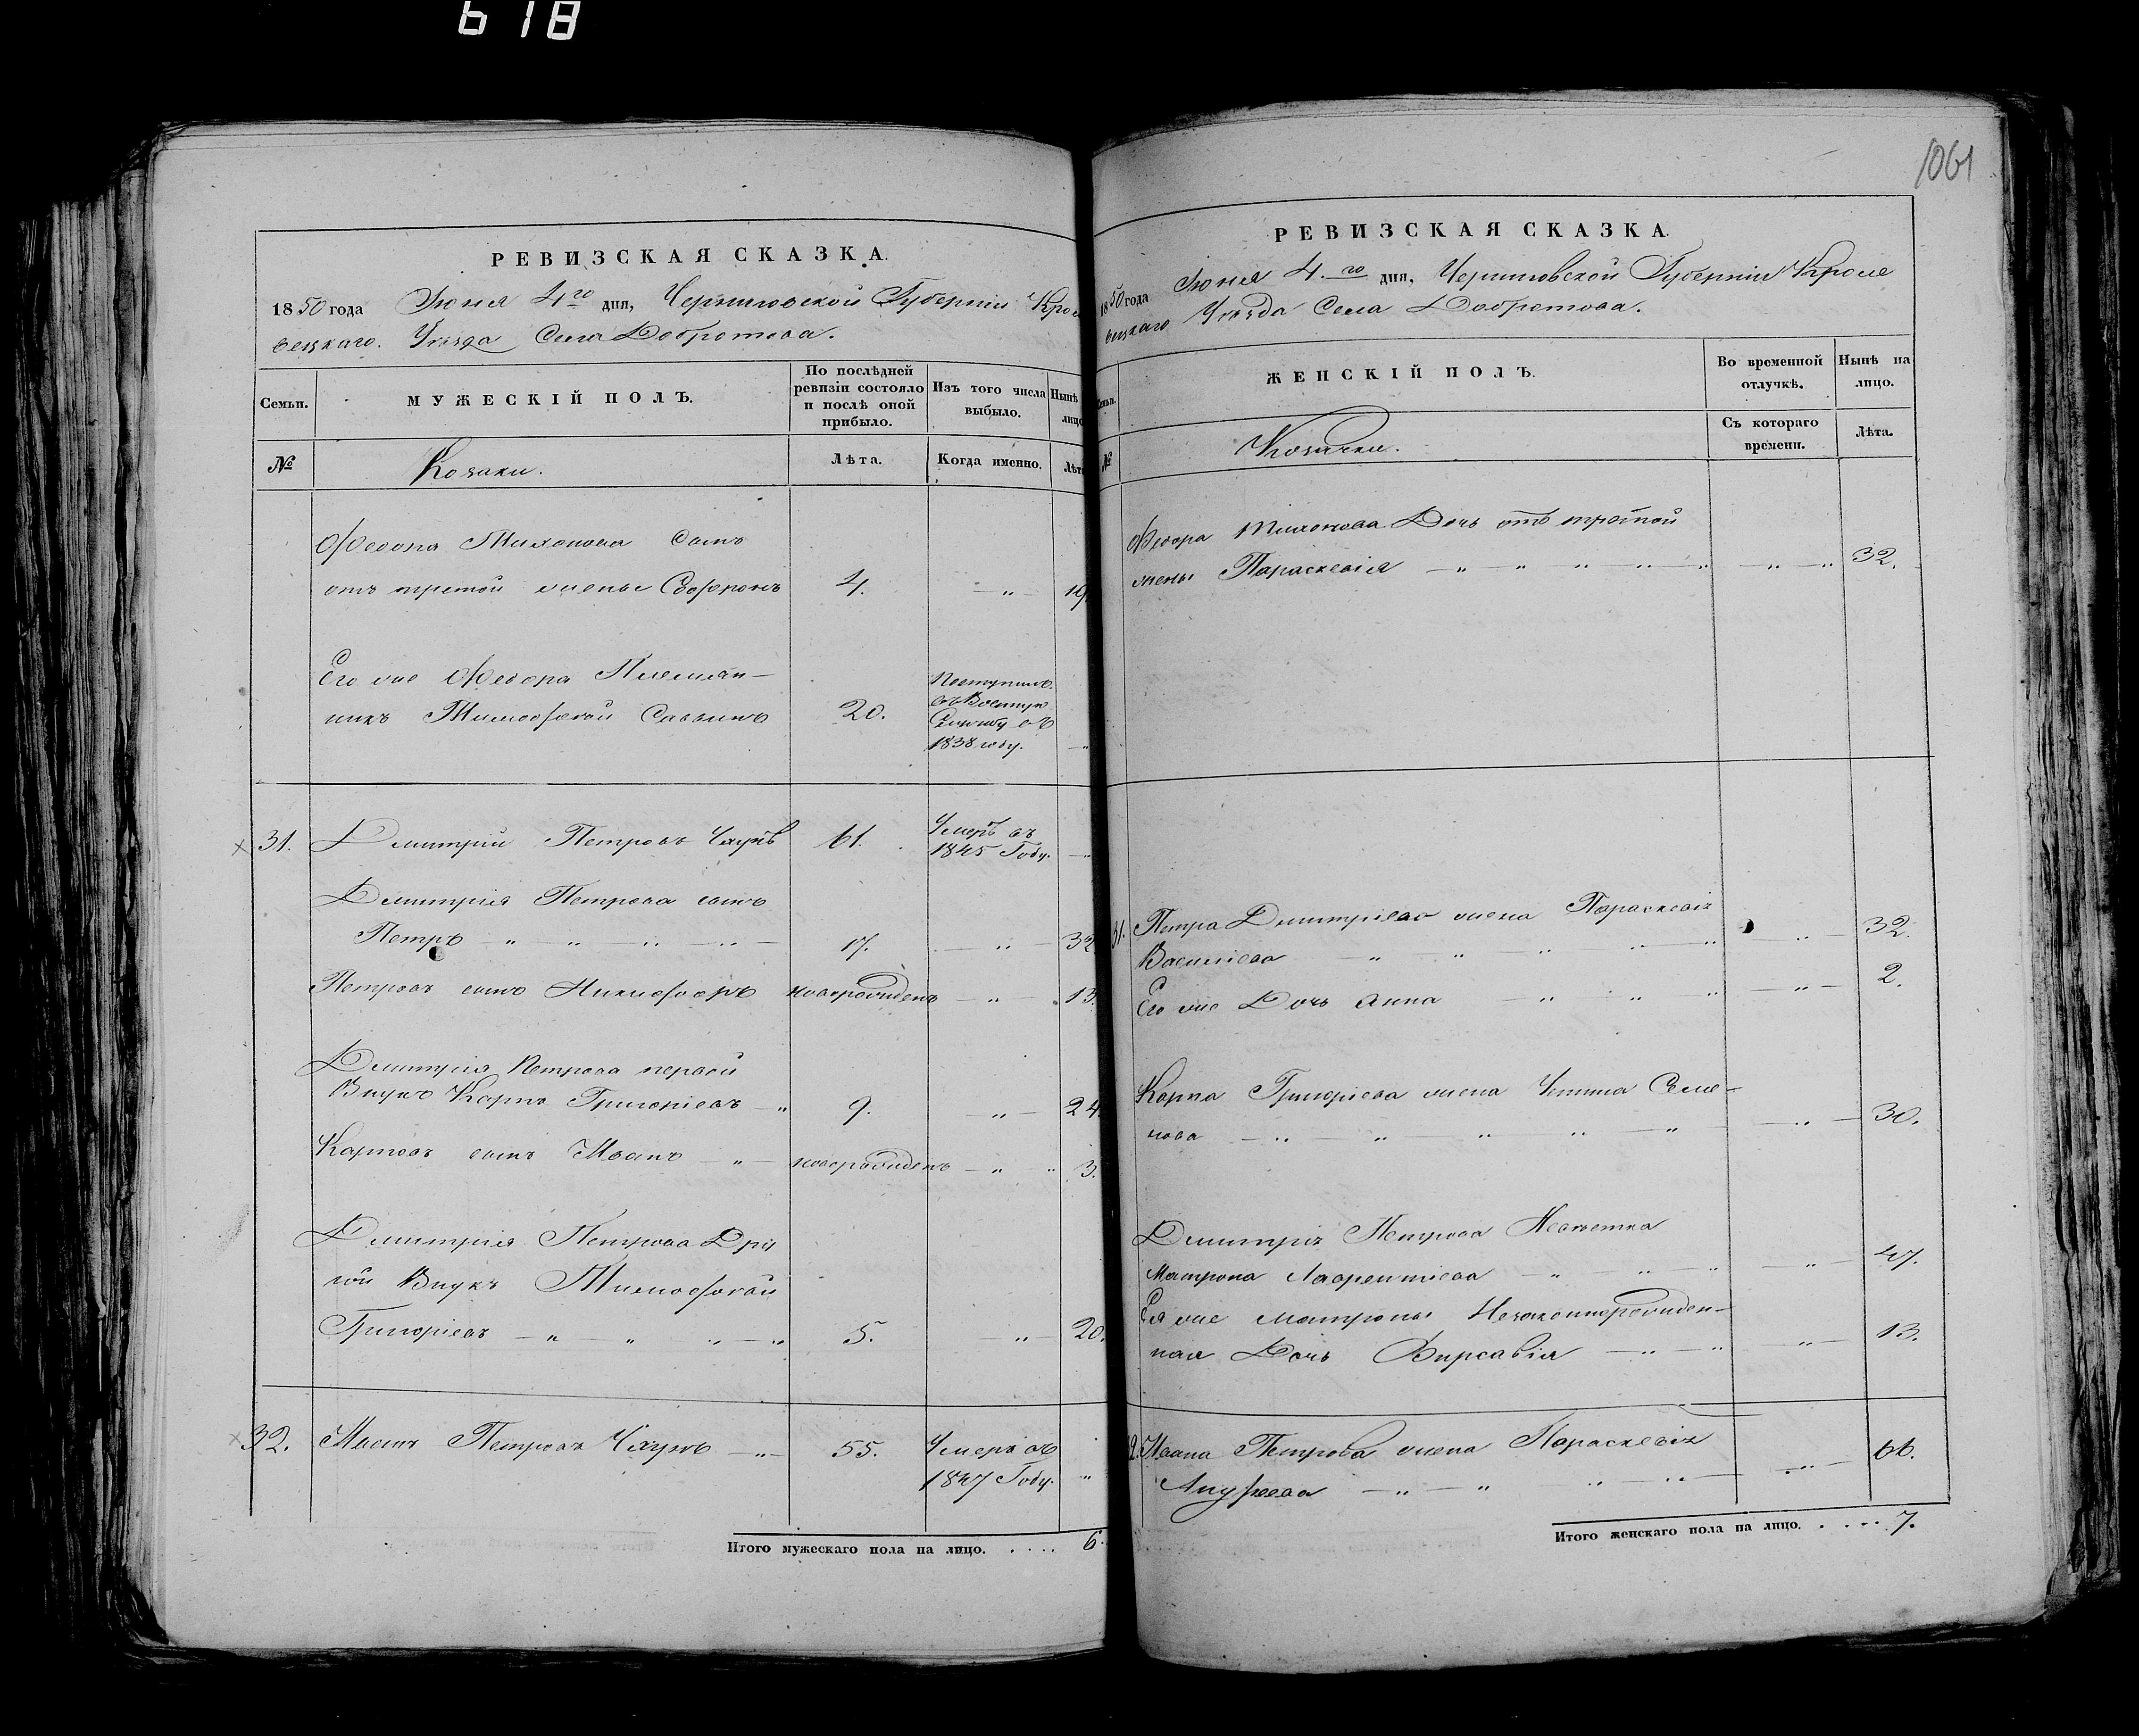 618
1061
РЕВИЗСКАЯ СКАЗКА.
1850 года Июня 4го дня, Черниговской Губерніи Кроле
вецкаго. Уѣзда Села Добротова.
Семьи.
МУЖЕСКІЙ ПОЛЪ.
По послѣдней
ревизіи состояло
и послѣ оной
прибыло.
Изъ того числа
выбыло.
Нынѣ
лицо
№
Козаки.
Лѣта.
Когда именно.
Лѣт
Федора Тихонова Сынъ
отъ третой жены Софронъ 4. — „ — 19
Его же Федора Племян—
никъ Тимофѣй Саввинъ 20.
Поступилъ
въ Военную
Службу въ
1838 году. „
31. Дмитрій Петровъ Чхунъ 61. Умеръ въ
1845 Году. „
Дмитрія Петрова сынъ
Петръ „ — „ — „ — „ — 17. — „ — 32
Петровъ сынъ Никифоръ новорожденъ — „ — 13.
Дмитрія Петрова первой
Внукъ Карпъ Григоріевъ — „ 9. — „ — 24
Карповъ сынъ Иванъ — „ — новорожденъ — „ „ 3.
Дмитрія Петрова Дру
гой Внукъ Тимофѣй
Григоріевъ — „ — „ „ — „ 5. — „ — 20.
32. Иванъ Петровъ Чхунъ — „ — 55. Умеръ въ
1847 Году. „
Итого мужескаго пола на лицо. . . . . 6.
РЕВИЗСКАЯ СКАЗКА.
1850 года Июня 4.го дня, Черниговской Губерніи Кроле
вецкаго Уѣзда Села Добротова.
Семьи.
ЖЕНСКІЙ ПОЛЪ.
Во временной
отлучкѣ.
Нынѣ на
лицо.
№
Козачки.
Съ котораго
времени.
Лѣта.
Федора Тихонова Дочь отъ третой
жены Параскевія — „ — „ „ „ „ — „ — „ 32.
31. Петра Дмитріева жена Параскевія
Василіева — „ „ — „ „ — „ „ — 32.
Его же Дочь Анна — „ „ „ — „ — 2.
Карпа Григоріева жена Устина Семе—
нова — „ — „ — „ — „ — „ — „ — 30.
Дмитрія Петрова Невѣстка
Матрона Лаврентіева — „ „ — „ — „ — 47.
Ея же Матроны Незаконнорожден—
ная Дочь Вирсавія — „ — „ — „ — 13.
32. Ивана Петрова жена Параскевія
Андреева — „ — „ „ — „ — „ — 66.
Итого женскаго пола на лицо. . . . . 7.